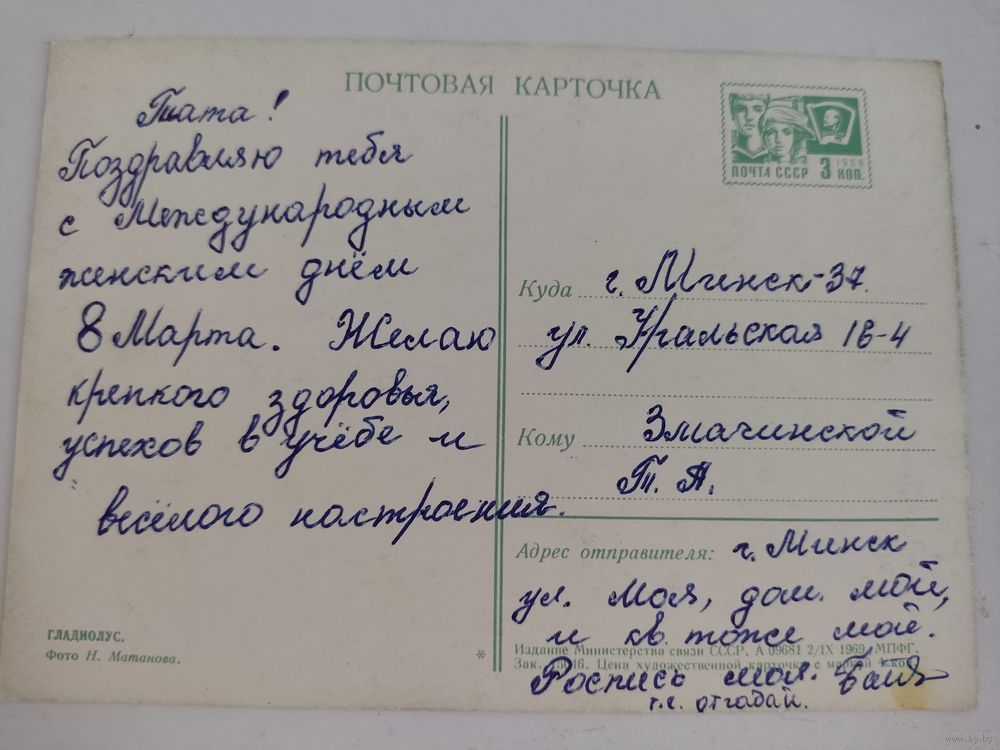 ПОЧТОВАЯ КАРТОЧКА
1966
ПОЧТА СССР 3 КОП.
Тата!
Поздравляю тебя
с Международным
женским днём
8 Марта. Желаю
крепкого здоровья,
успехов в учёбе и
весёлого настроения.
Куда г. Минск-37.
ул. Уральская 16-4
Кому Змачинской
Т. А.
Адрес отправителя: г. Минск
ул. Моя, дом. мой,
и кв. тоже мой.
Роспись моя.
т.е. отгадай.
ГЛАДИОЛУС.
Фото Н. Матанова.
* Издание Министерства связи СССР. А 09681 2/IX 1969. МПФГ.
Зак. Цена художественной карточки с маркой 4 коп.
www.ay.by